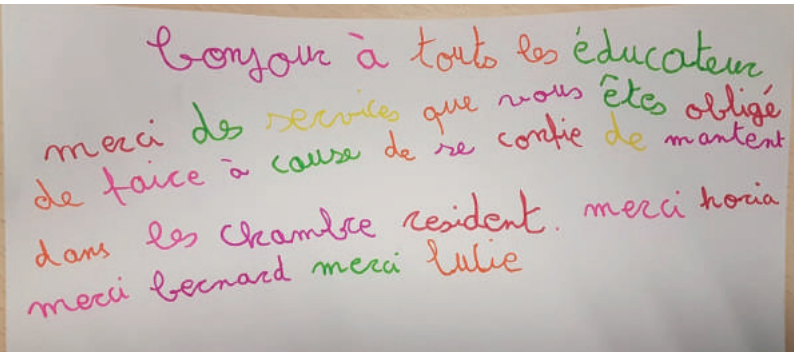 bonjour à touts les éducateur
merci des services que vous êtes obligé
de faire à cause de se confie de mantent
dans les chambre resident. merci horia
merci bernard merci lulie